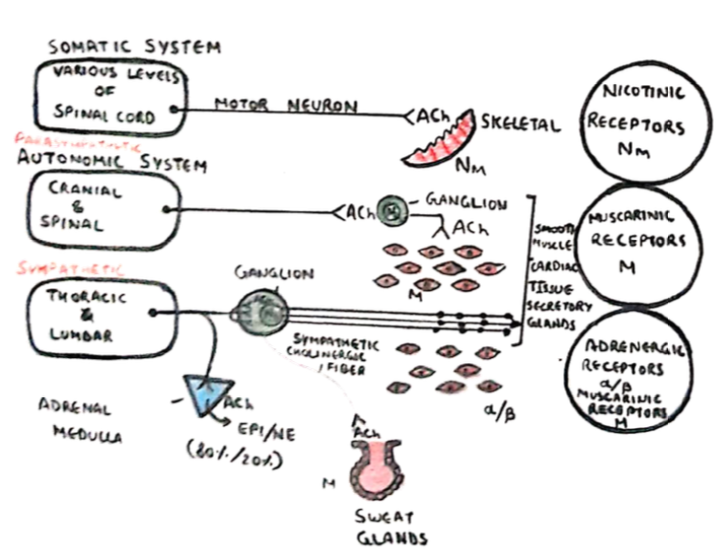 SOMATIC SYSTEM
VARIOUS LEVELS
OF
SPINAL CORD
MOTOR NEURON
ACh
SKELETAL
NM
NICOTINIC
RECEPTORS
NM
PARASYMPATHETIC
AUTONOMIC SYSTEM
CRANIAL
&
SPINAL
ACh
GANGLION
ACh
M
SMOOTH
MUSCLE
CARDIAC
TISSUE
SECRETORY
GLANDS
MUSCARINIC
RECEPTORS
M
SYMPATHETIC
THORACIC
&
LUMBAR
GANGLION
SYMPATHETIC
CHOLINERGIC
FIBER
α/β
ADRENERGIC
RECEPTORS
α/β
MUSCARINIC
RECEPTORS
M
ADRENAL
MEDULLA
ACh
EPI/NE
(80%/20%)
ACh
M
SWEAT
GLANDS